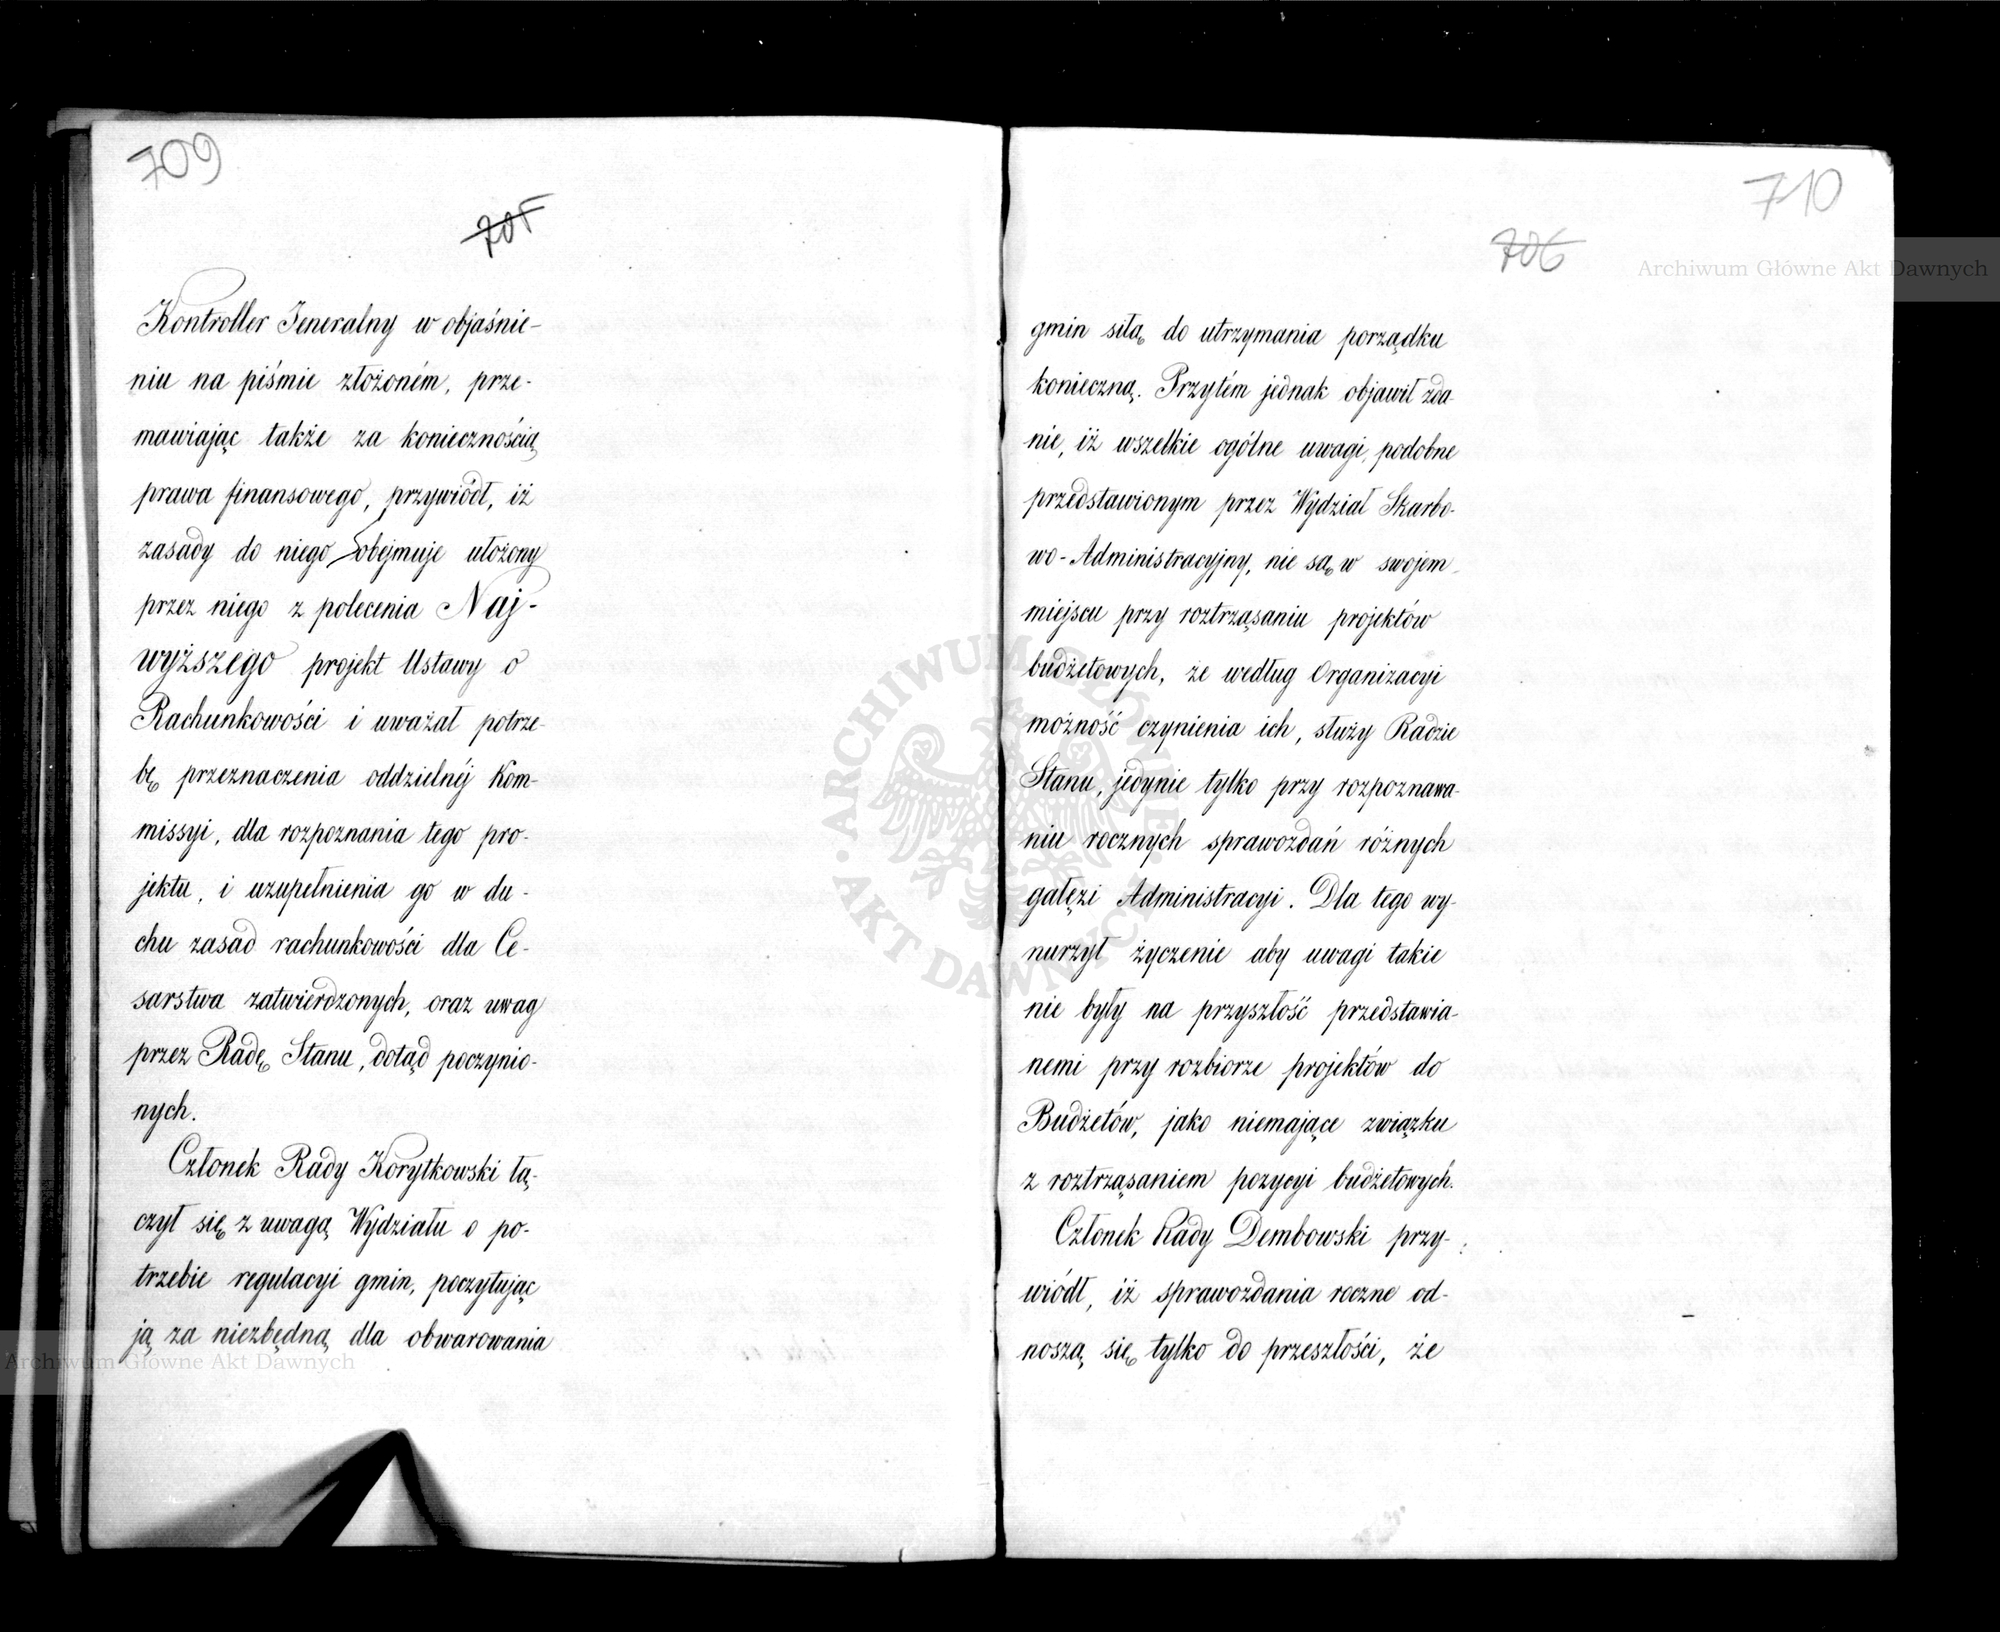 709
705
Kontroller Jeneralny w objaśnie-
niu na piśmie złożoném, prze-
mawiając także za koniecznością
prawa finansowego, przywiódł, iż
zasady do niego obejmuje ułożony
przez niego z polecenia Naj-
wyższego projekt Ustawy o
Rachunkowości i uważał potrze-
bę przeznaczenia oddzielnéj Kom-
missyi, dla rozpoznania tego pro-
jektu, i uzupełnienia go w du-
chu zasad rachunkowości dla Ce-
sarstwa zatwierdzonych, oraz uwag
przez Radę Stanu, dotąd poczynio-
nych.
Członek Rady Korytkowski łą-
czył się z uwagą Wydziału o po-
trzebie regulacyi gmin, poczytując
ją za niezbędną dla obwarowania
710
706
gmin siłą do utrzymania porządku
konieczną. Przytém jednak objawił zda-
nie, iż wszelkie ogólne uwagi, podobne
przedstawionym przez Wydział Skarbo-
wo-Administracyjny, nie są w swojem
miejscu przy roztrząsaniu projektów
budżetowych, że według Organizacyi
możność czynienia ich, służy Radzie
Stanu, jedynie tylko przy rozpoznawa-
niu rocznych sprawozdań różnych
gałęzi Administracyi. Dla tego wy-
nurzył życzenie aby uwagi takie
nie były na przyszłość przedstawia-
nemi przy rozbiorze projektów do
Budżetów, jako niemające związku
z roztrząsaniem pozycyi budżetowych.
Członek Rady Dembowski przy-
wiódł, iż sprawozdania roczne od-
noszą się tylko do przeszłości, że
Archiwum Główne Akt Dawnych
Archiwum Główne Akt Dawnych
ARCHIWUM GŁÓWNE AKT DAWNYCH